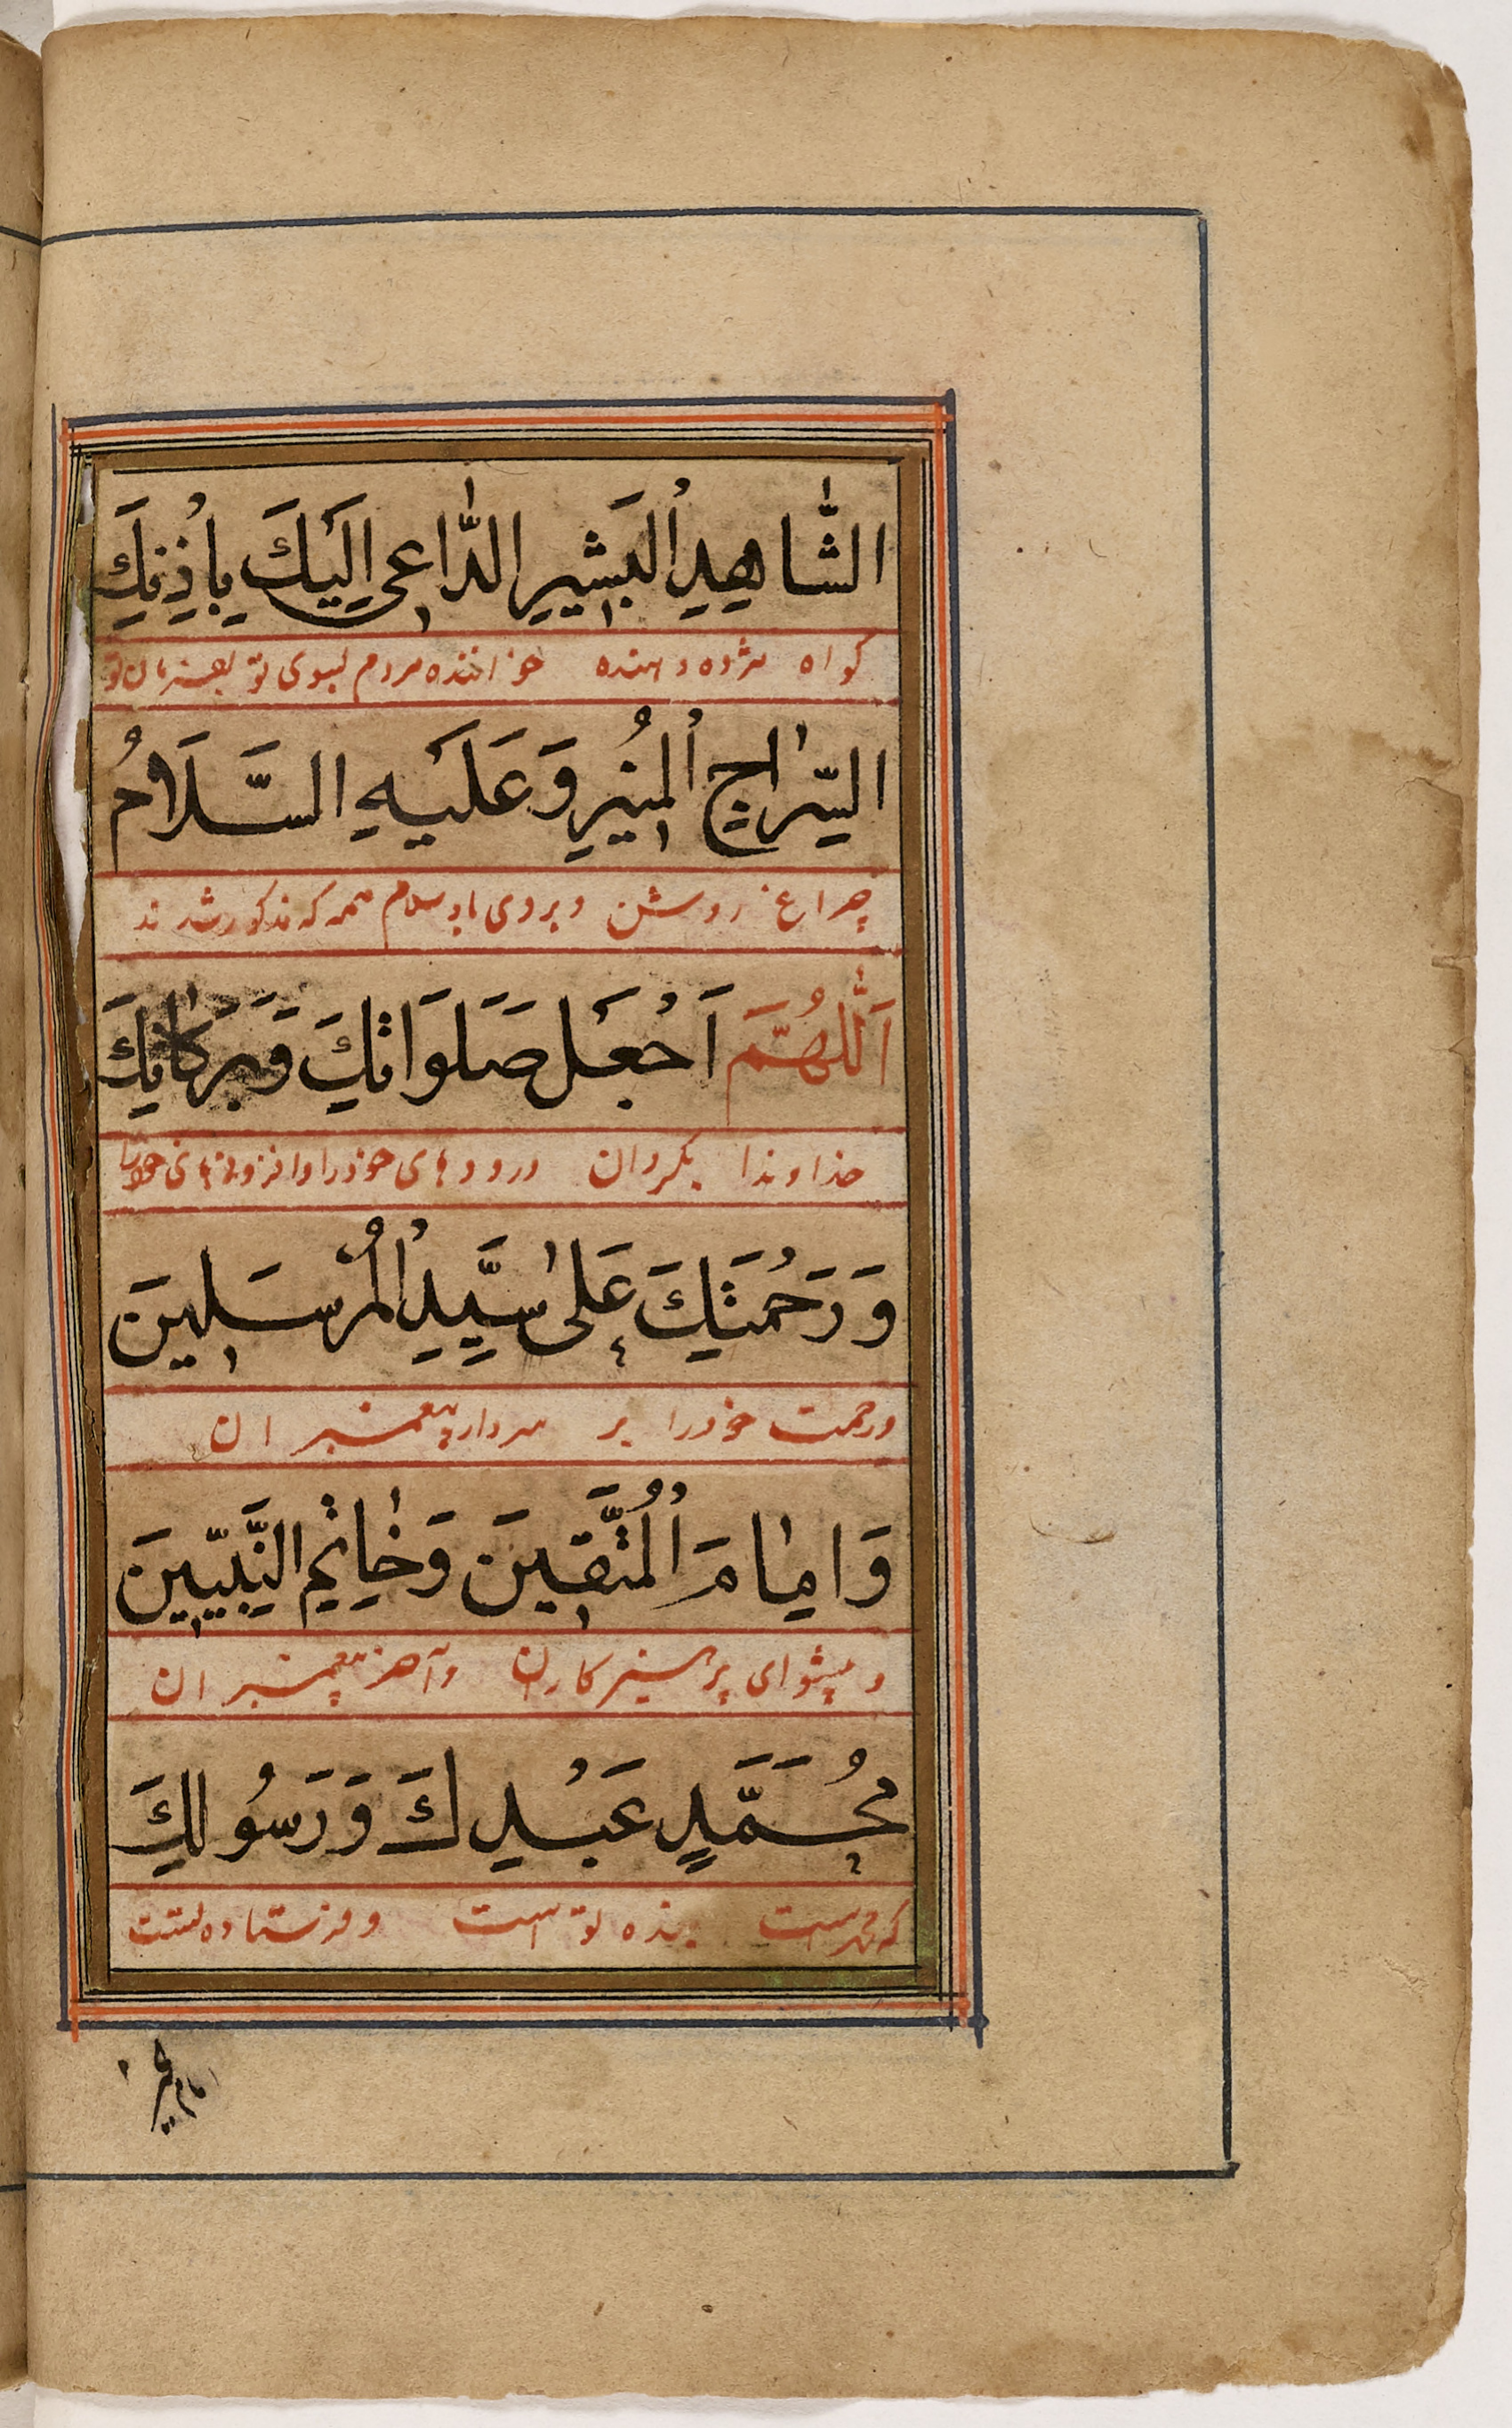 الشَّاهِدِ الْبَشِيرِ الدَّاعِي اِلَيْكَ بِاِذْنِكَ
کواه مژده دهنده خواننده مردم بسوی تو بفرمان تو
السِّرَاجِ الْمُنِيرِ وَعَلَيْهِ السَّلَامُ
چراغ روشن و بروی باد سلام همه که مذکور شدند
اَللّٰهُمَّ اَجْعَلْ صَلَوَاتِكَ وَبَرَكَاتِكَ
خداوندا بکردان درودهای خودرا وافزونیهای
وَرَحْمَتَكَ عَلٰى سَيِّدِ الْمُرْسَلِينَ
ورحمت خودرا بر سردار پیغمبران
وَاِمَامَ الْمُتَّقِينَ وَخَاتِمِ النَّبِيِّينَ
و پیشوای پرهیزکاران وآخر پیغمبران
مُحَمَّدٍ عَبْدِكَ وَرَسُولِكَ
که محمد است بنده تو است و فرستاده تست